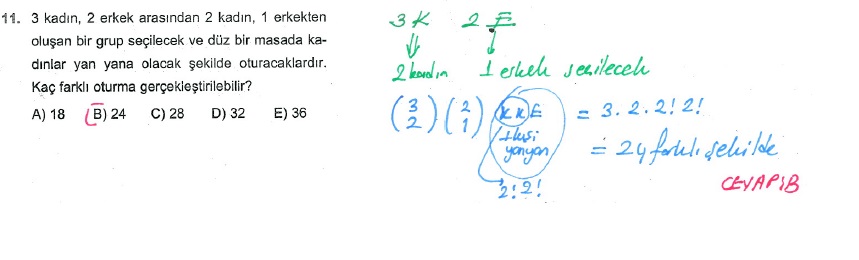 11. 3 kadın, 2 erkek arasından 2 kadın, 1 erkekten
oluşan bir grup seçilecek ve düz bir masada ka-
dınlar yan yana olacak şekilde oturacaklardır.
Kaç farklı oturma gerçekleştirilebilir?
A) 18 B) 24 C) 28 D) 32 E) 36
3 K 2 E
2 kadın 1 erkek seçilecek
(3 2) (2 1) K K E = 3. 2. 2! 2!
1 kişi
yanyana
= 24 farklı şekilde
2! 2!
CEVAP:B